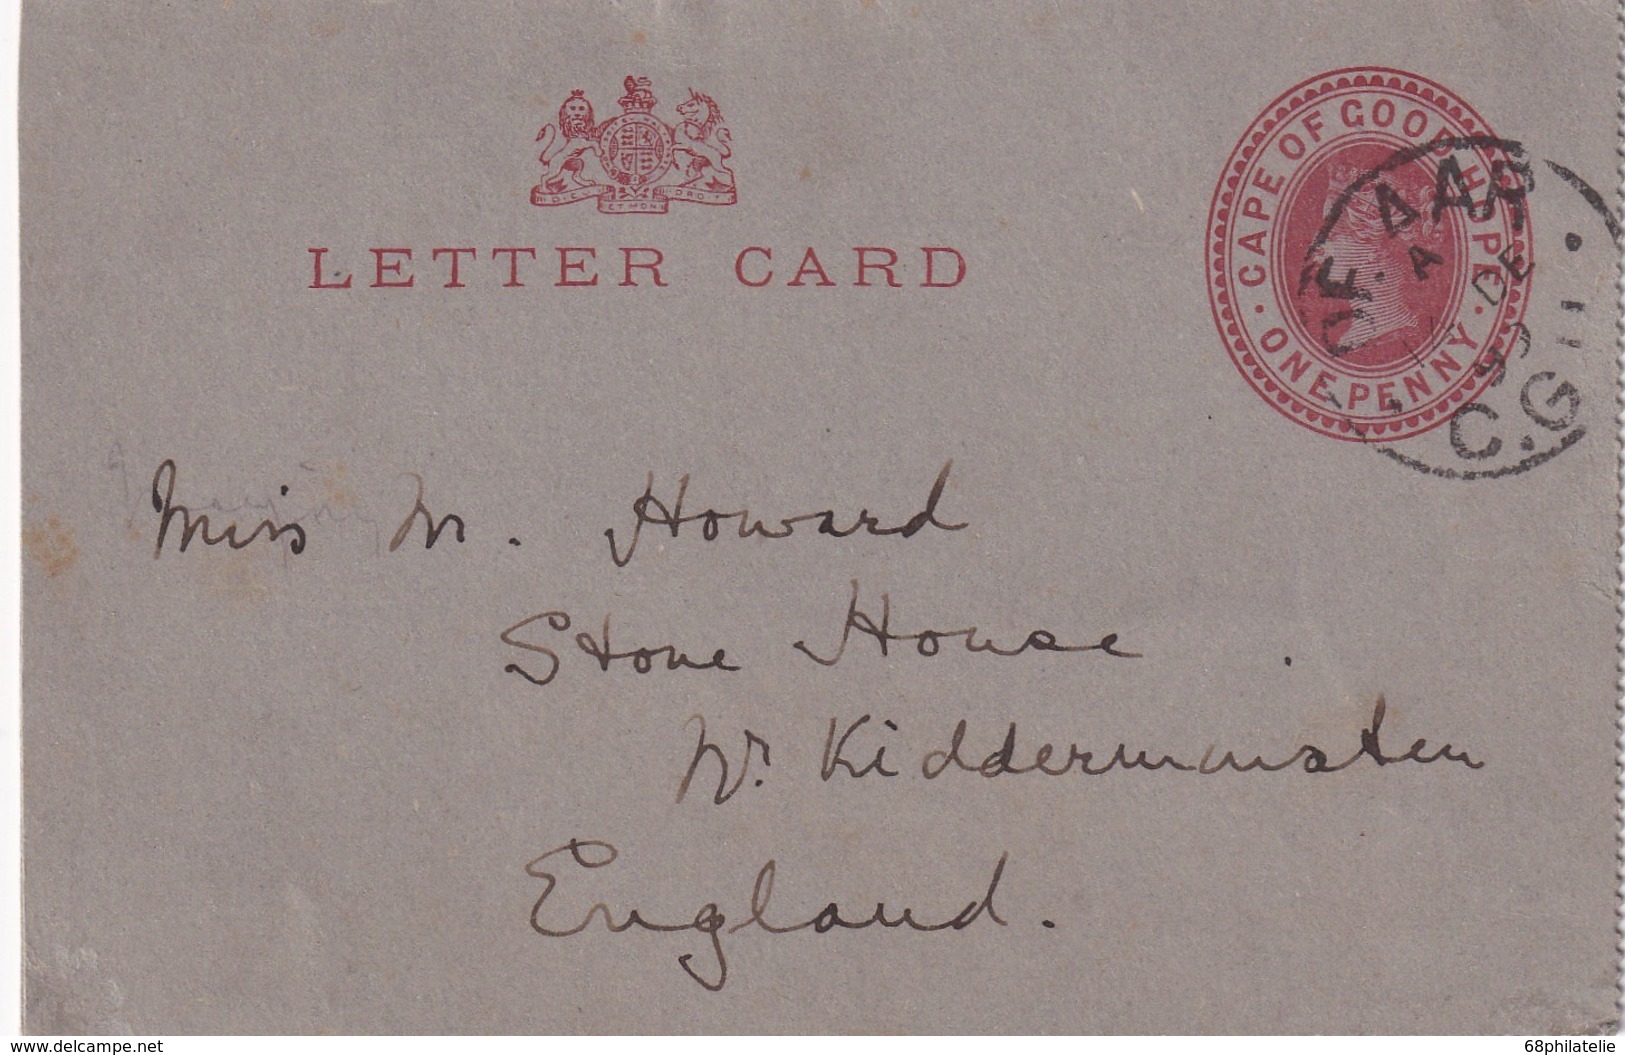 LETTER CARD
CAPE OF GOOD HOPE
ONE PENNY
DE AAR
A
DE
99
C.G
Miss M. Howard
Stone House
Nr. Kidderminster
England.
www.delcampe.net
68philatelie